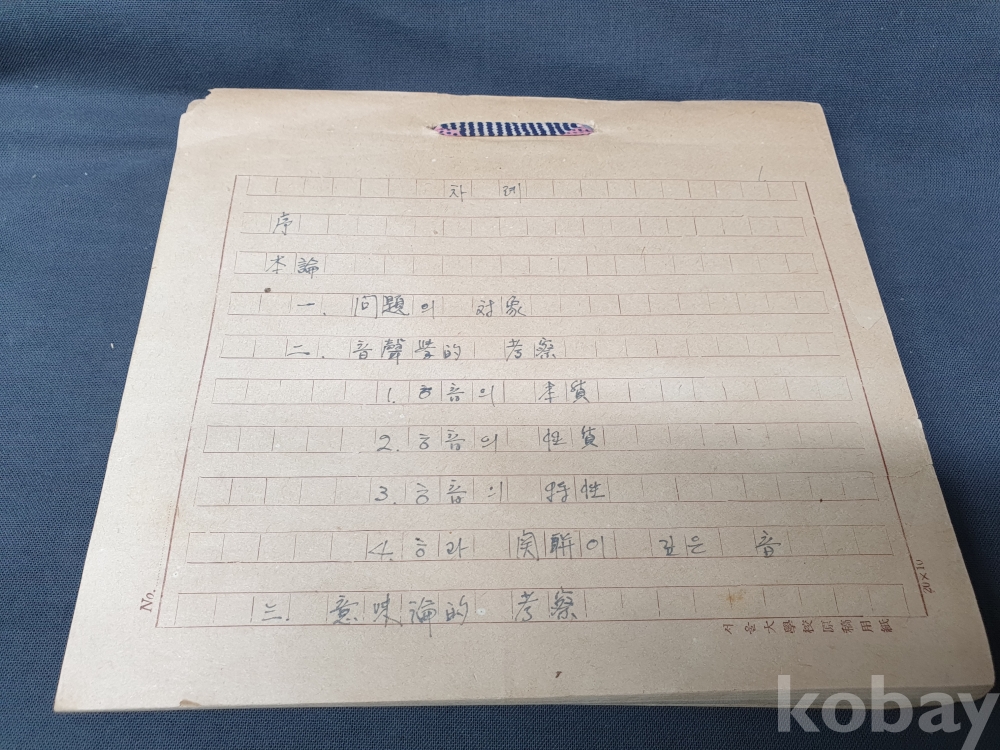 차례
序
本論
一. 问題의 対象
二. 音聲学的 考察
1. ㅎ音의 本質
2. ㅎ音의 性质
3. ㅎ音의 特性
4. ㅎ과 関聯이 깊은 音
三. 意味論的 考察
No.
20×10
서울大學校原稿用紙
kobay